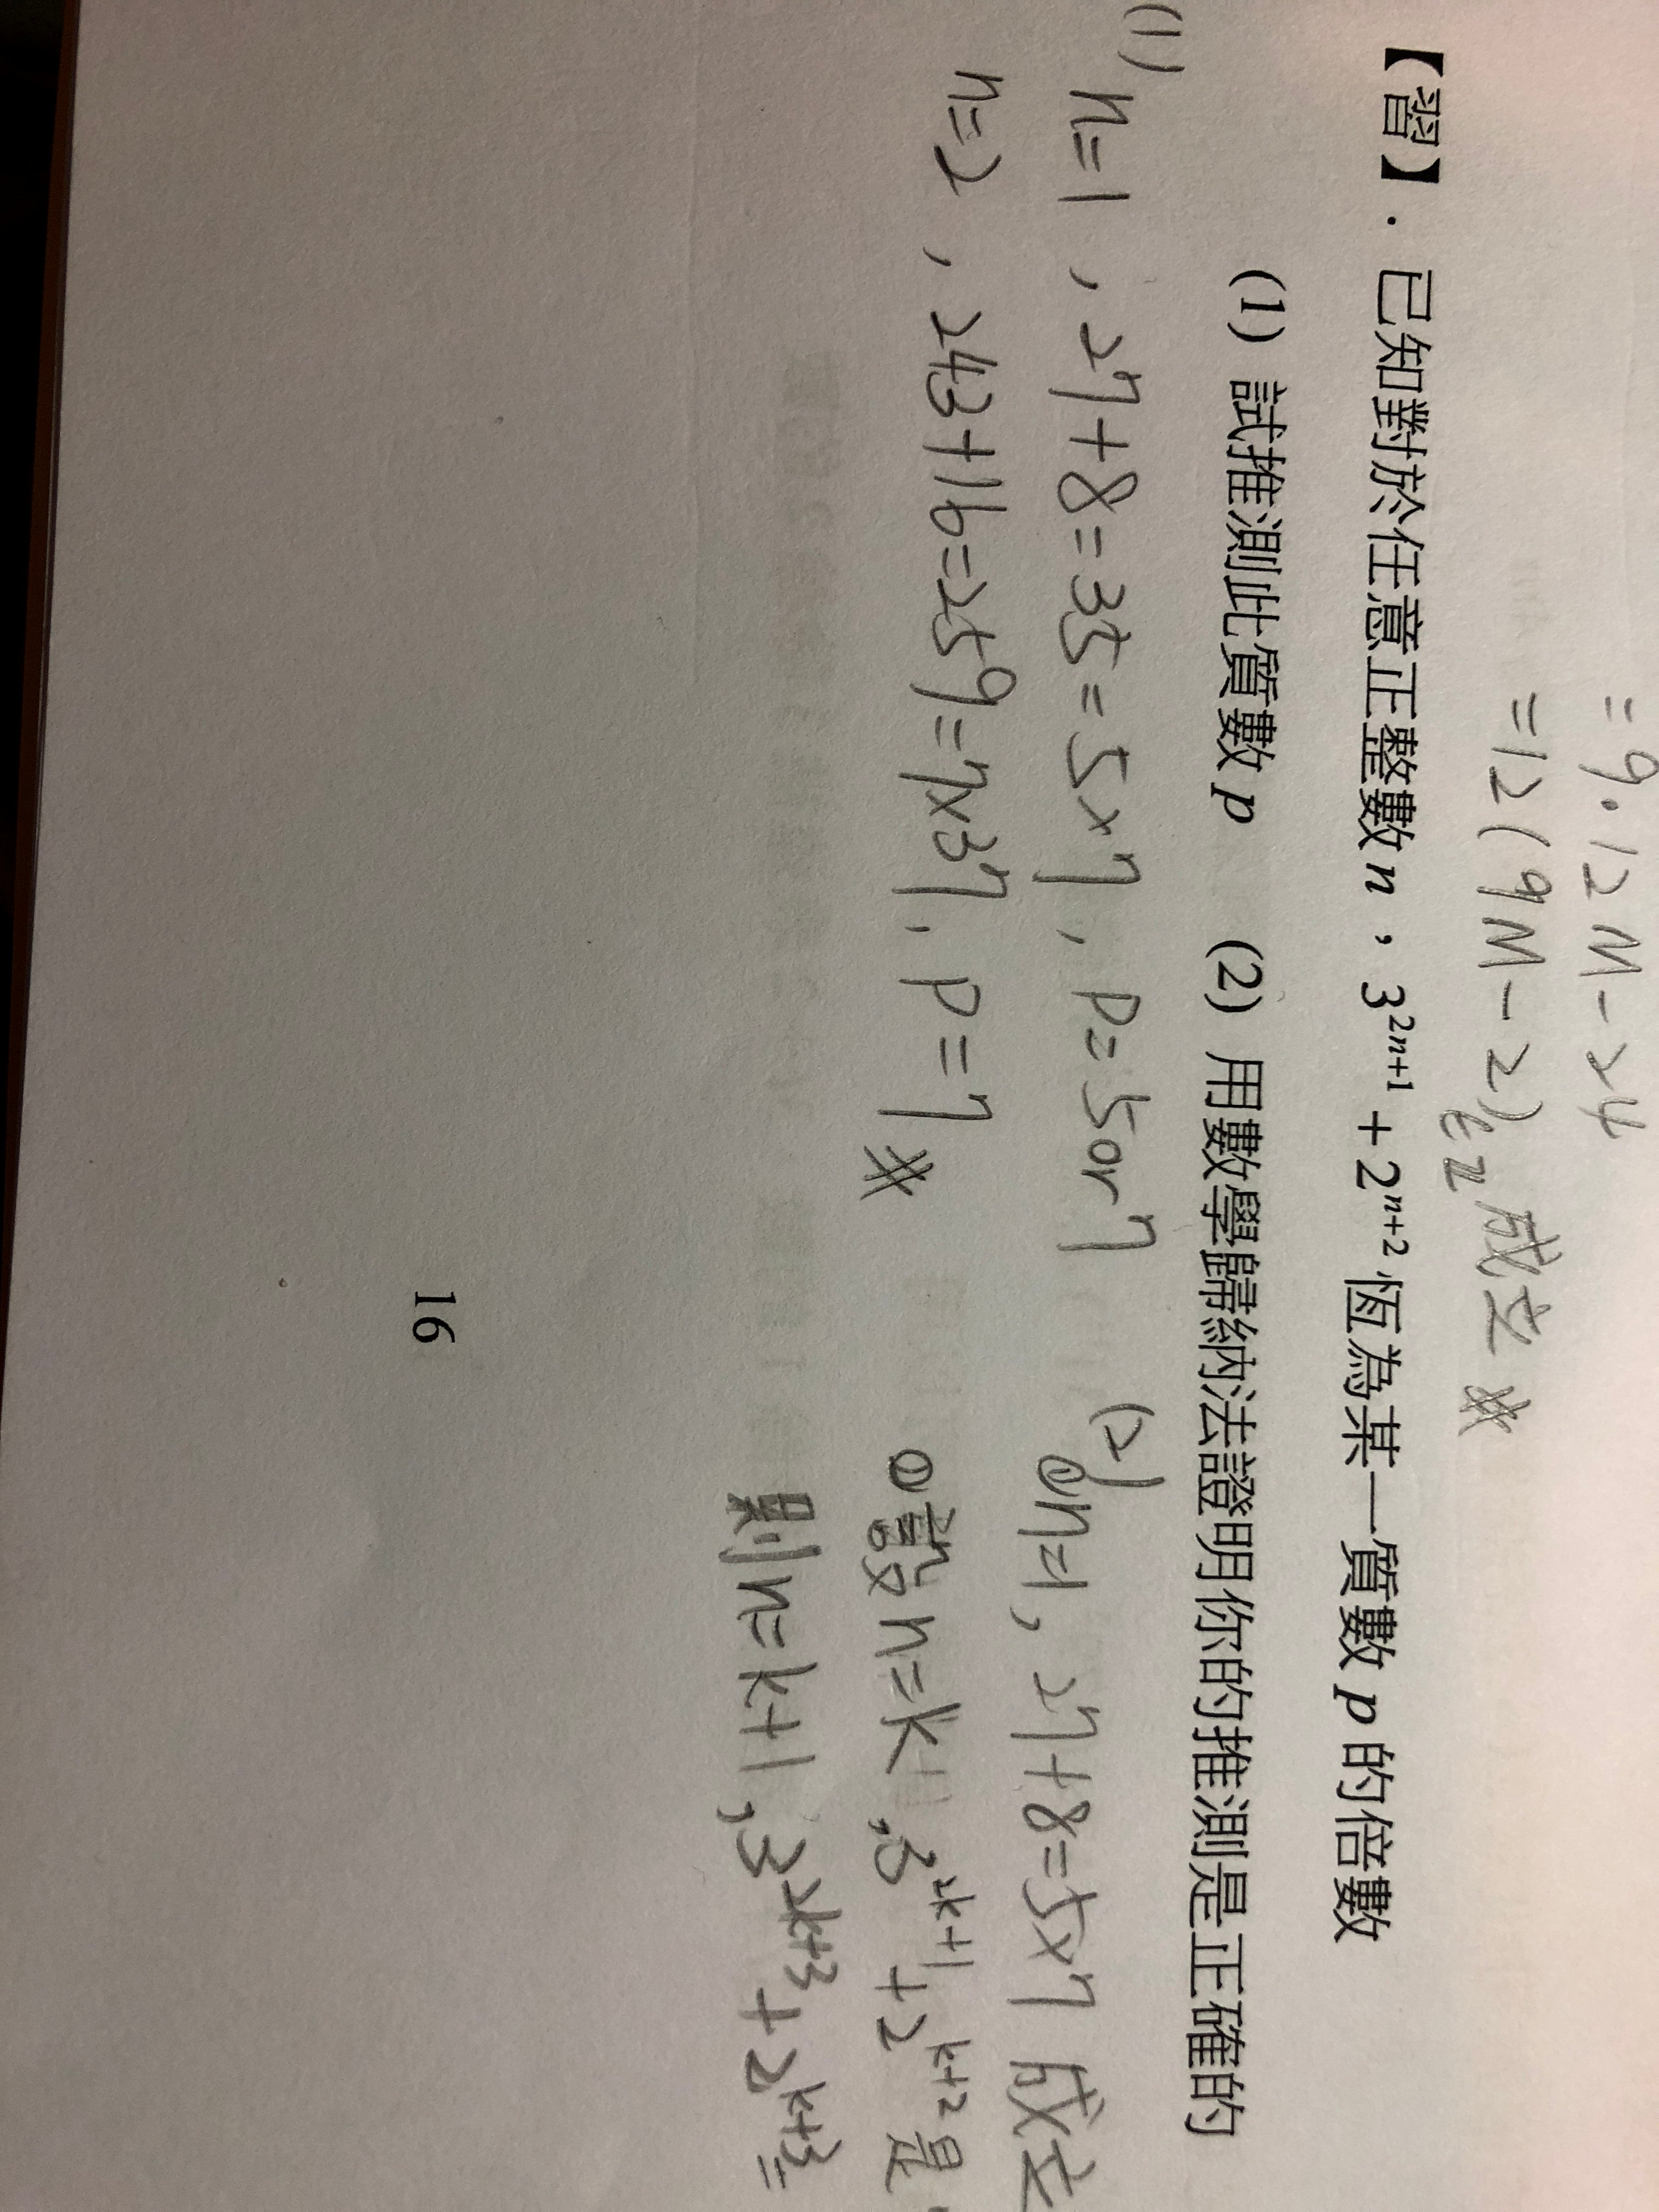 = 9·12M-24
=12(9M-2) ∈Z 成立 ※
【習】.已知對於任意正整數n,3^{2n+1}+2^{n+2}恆為某一質數p的倍數
(1) 試推測此質數p (2) 用數學歸納法證明你的推測是正確的
(1) n=1, 27+8=35=5×7, p=5or7
n=2, 243+16=259=7×37, p=7 ※
(2) ①n=1, 27+8=5×7 成立
設n=k, 3^{2k+1}+2^{k+2}是
則n=k+1, 3^{2k+3}+2^{k+3}=
16